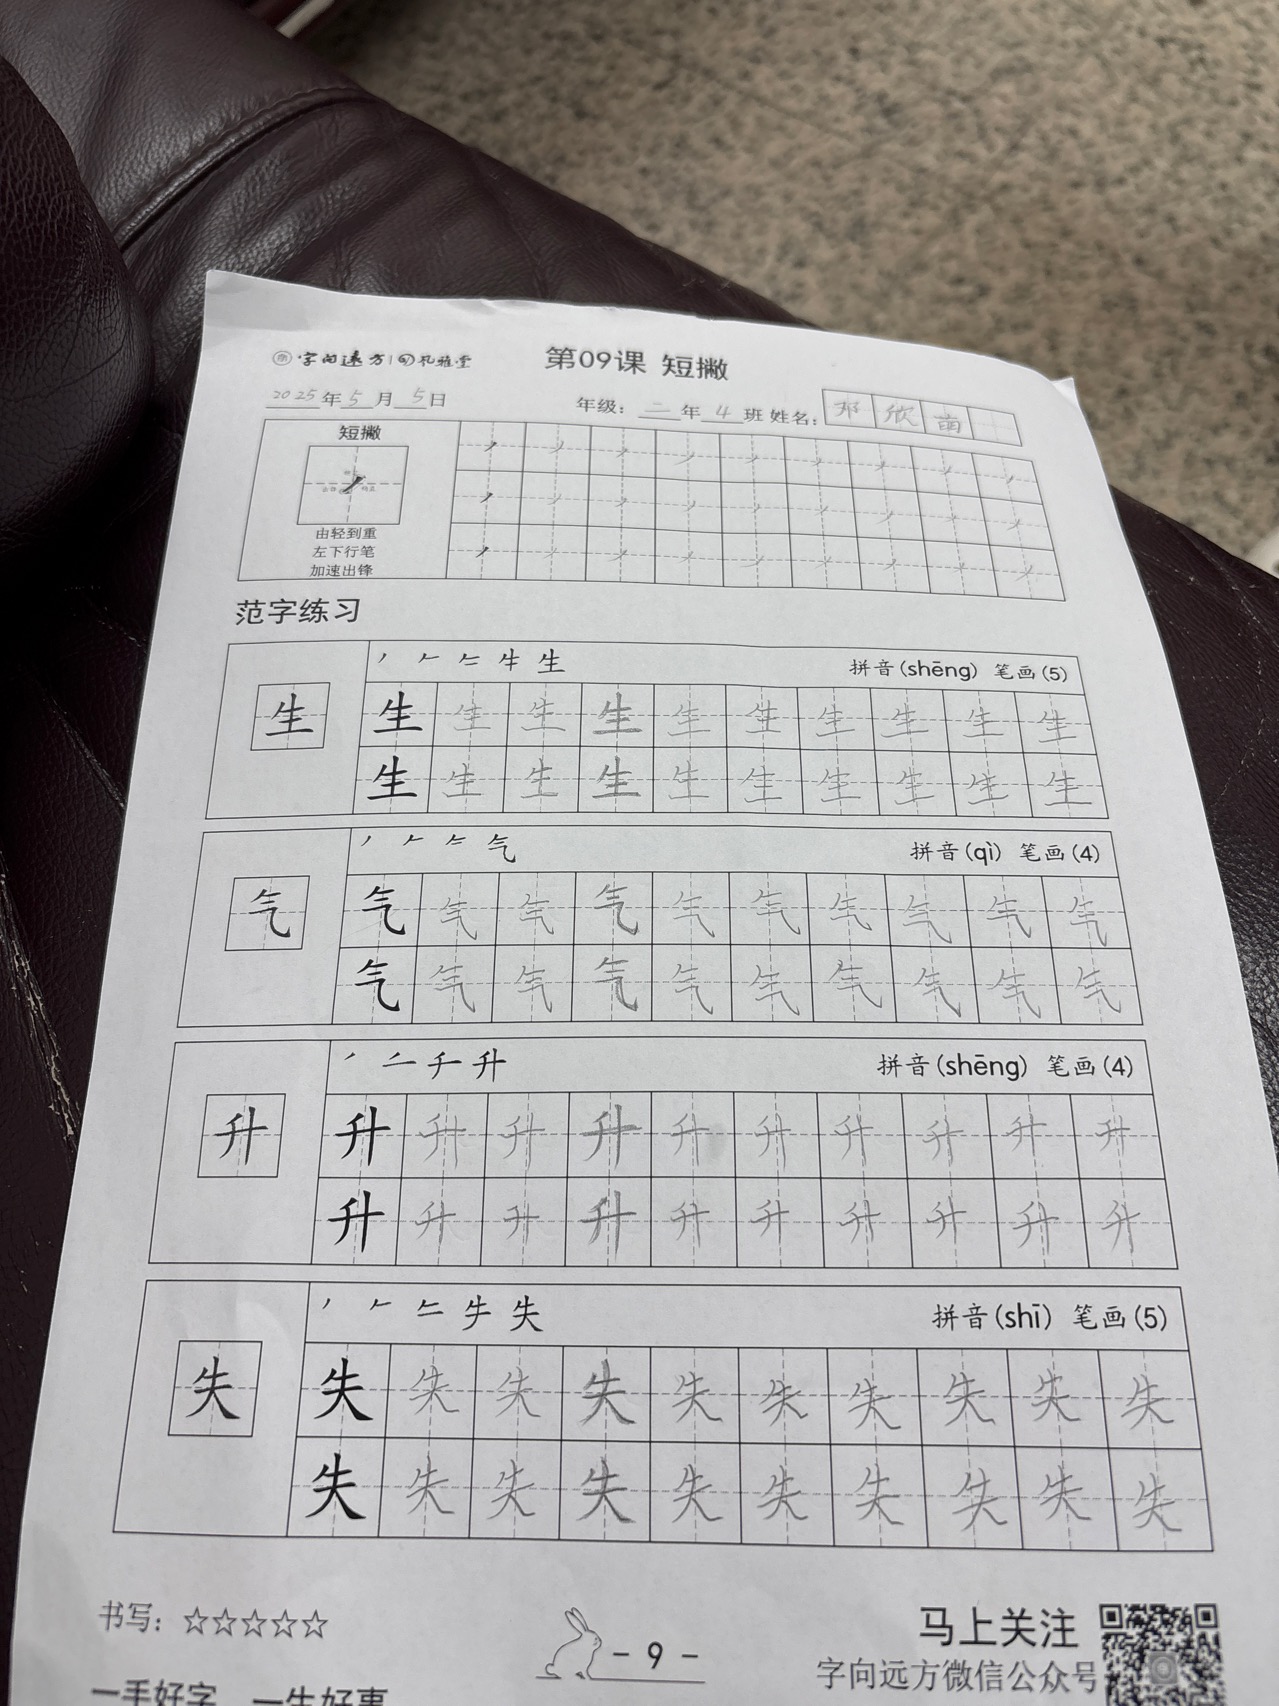 字向远方 礼雅堂 第09课 短撇
2025年5月5日 年级：二年4班 姓名：邓欣萌
短撇
由轻到重
左下行笔
加速出锋
范字练习
生 拼音(shēng) 笔画(5)
生 生 生 生 生 生 生 生 生 生 生
生 生 生 生 生 生 生 生 生 生
气 拼音(qì) 笔画(4)
气 气 气 气 气 气 气 气 气 气 气
气 气 气 气 气 气 气 气 气 气
升 拼音(shēng) 笔画(4)
升 升 升 升 升 升 升 升 升 升 升
升 升 升 升 升 升 升 升 升 升
失 拼音(shī) 笔画(5)
失 失 失 失 失 失 失 失 失 失 失
失 失 失 失 失 失 失 失 失 失
书写：☆☆☆☆☆
- 9 -
马上关注
字向远方微信公众号
一手好字 一生好事